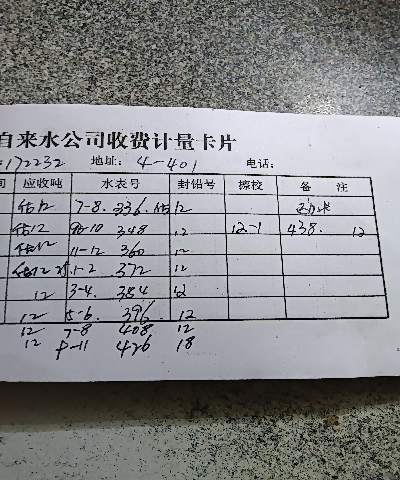 自来水公司收费计量卡片
172232 地址: 4-401 电话:
间 应收吨 水表号 封铅号 擦校 备 注
估12 7-8. 336. 估12
估12 9-10 348 12 12-1 438. 12
估12 11-12 360 12
估12 1-2 372 12
12 3-4. 384 12
12 5-6. 396. 12
12 7-8 408 12
12 9-11 426 18